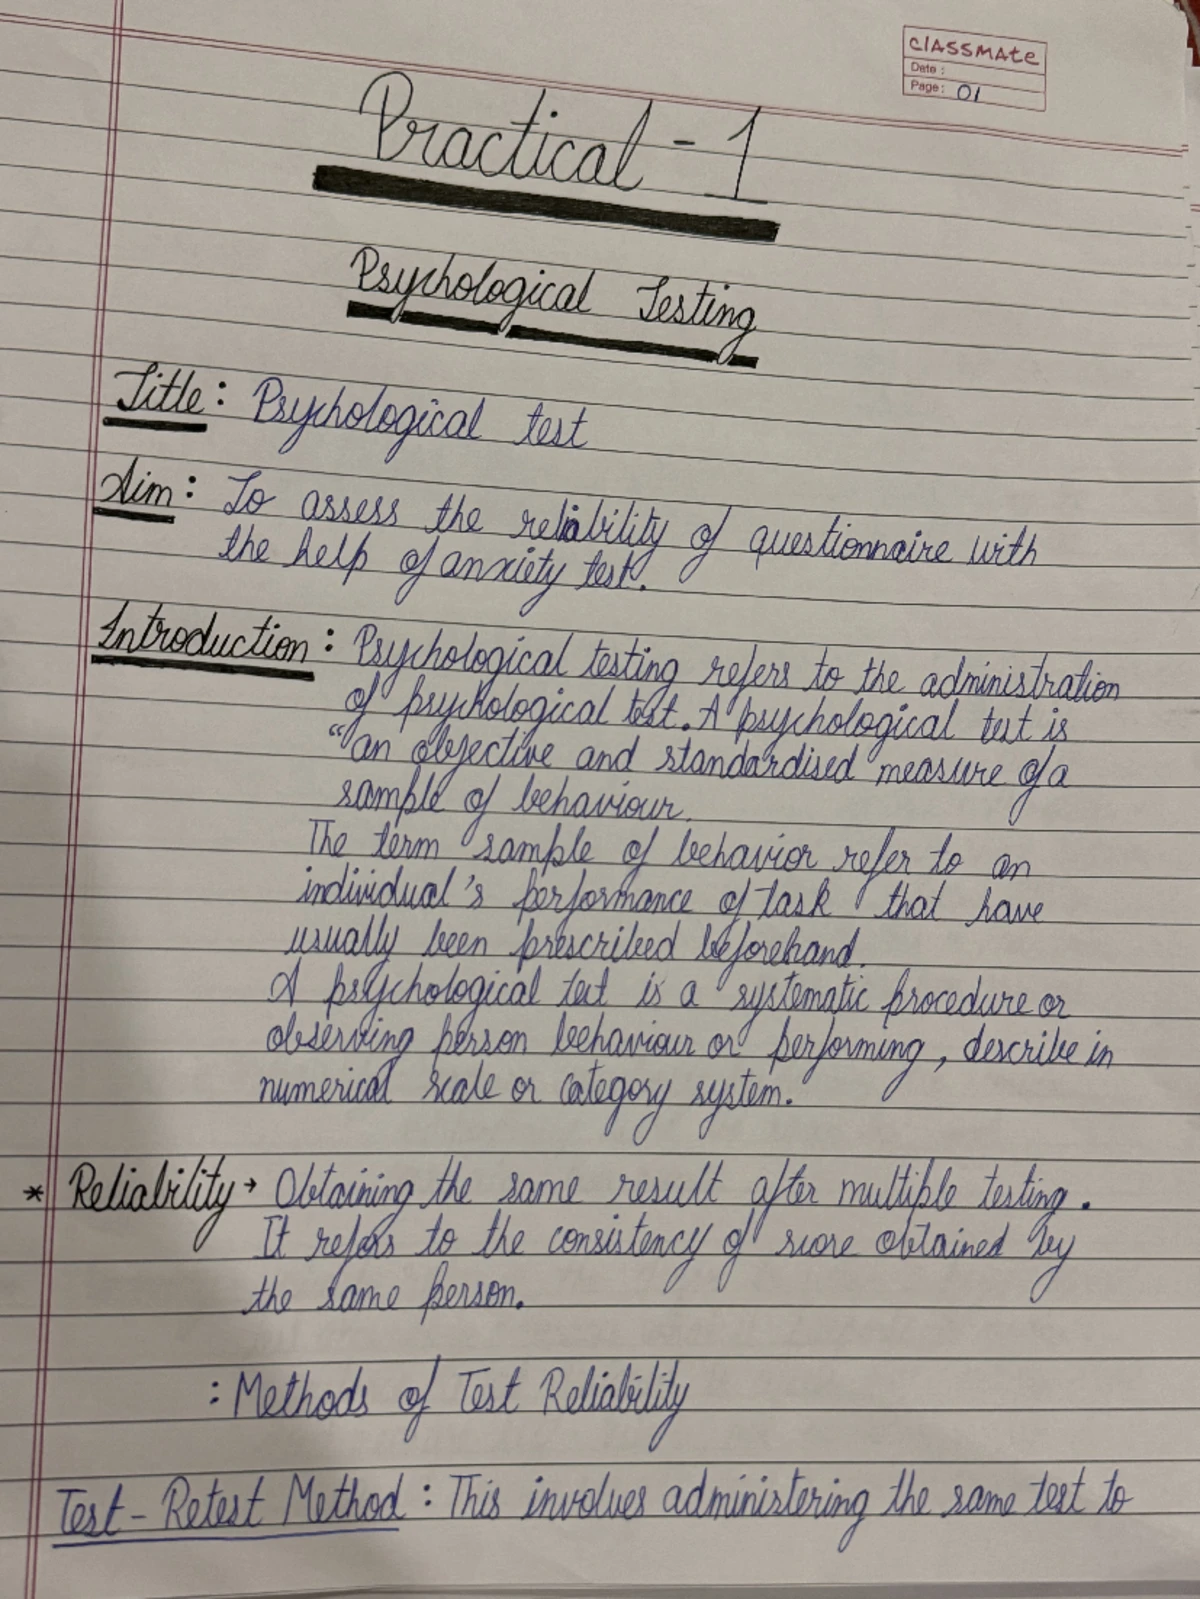 classmate
Date :
Page : 01
Practical - 1
Psychological Testing
Title : Psychological test
Aim : To assess the reliability of questionnaire with
the help of anxiety test.
Introduction : Psychological testing refers to the administration
of psychological test. A psychological test is
"an objective and standardised measure of a
sample of behaviour.
The term sample of behavior refer to an
individual's performance of task that have
usually been prescribed beforehand.
A psychological test is a systematic procedure or
observing person behaviour or performing, describe in
numerical scale or category system.
* Reliability → Obtaining the same result after multiple testing.
It refers to the consistency of score obtained by
the same person.
: Methods of Test Reliability
Test - Retest Method : This involves administering the same test to